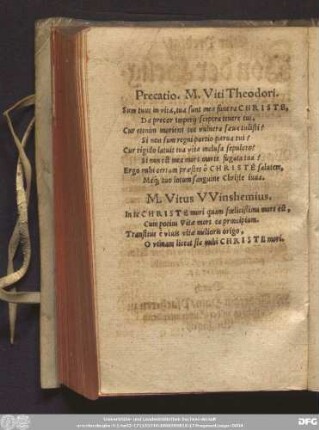 Precatio. M. Viti Theodori.
Sum tuus in vita, tua sunt mea funera CHRISTE,
Da precor imperij sceptra tenere tui,
Cur etenim moriens tot vulnera saeua tulisti?
Si non sum regni portio parua tui?
Cur rigido latuit tua vita inclusa sepulcro?
Si non est mea mors morte fugata tua?
Ergo mihi certam praestes ô CHRISTE salutem,
Meq́; tuo lotum sanguine Christe iuua.
M. Vitus VVinshemius.
In te CHRISTE mori quam foelicißima mors est,
Cum potius Vitae mors ea principium.
Transitus è viuis vitae melioris origo,
O utinam liceat sic mihi CHRISTE mori.